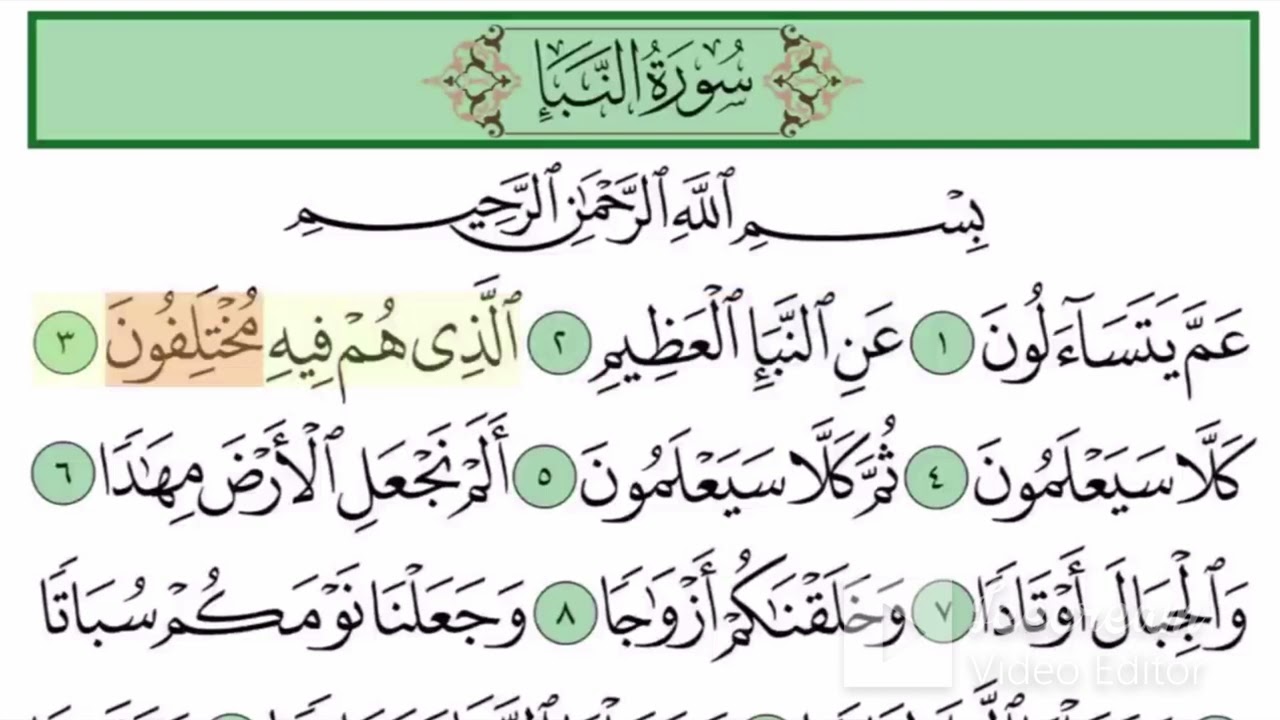 سُورَةُ النَّبَإِ
بِسْمِ ٱللَّهِ ٱلرَّحْمَٰنِ ٱلرَّحِيمِ
عَمَّ يَتَسَآءَلُونَ ١ عَنِ ٱلنَّبَإِ ٱلْعَظِيمِ ٢ ٱلَّذِى هُمْ فِيهِ مُخْتَلِفُونَ ٣
كَلَّا سَيَعْلَمُونَ ٤ ثُمَّ كَلَّا سَيَعْلَمُونَ ٥ أَلَمْ نَجْعَلِ ٱلْأَرْضَ مِهَٰدًا ٦
وَٱلْجِبَالَ أَوْتَادًا ٧ وَخَلَقْنَٰكُمْ أَزْوَٰجًا ٨ وَجَعَلْنَا نَوْمَكُمْ سُبَاتًا
Video Editor